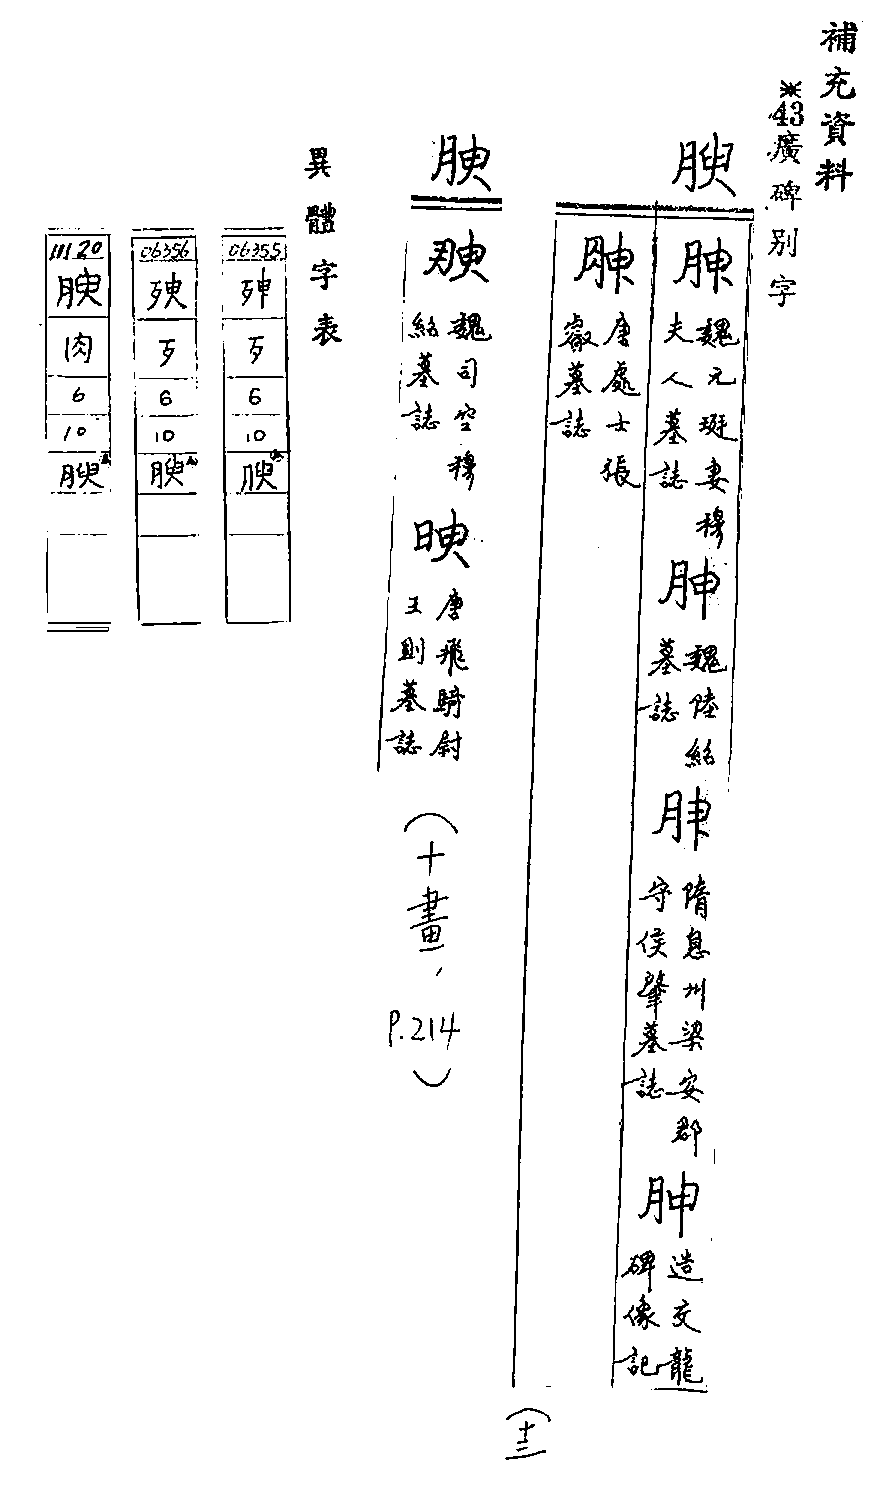 補充資料
※43廣碑別字
腴
腴
魏元珽妻穆
夫人墓誌
魏陸紹
墓誌
隋息州梁安郡
守侯肇墓誌
造交龍
碑像記
唐處士張
叡墓誌
(十二)
腴
魏司空穆
紹墓誌
唐飛騎尉
王則墓誌
(十畫,P.214)
異體字表
06355
歹
6
10
腴
06356
歹
6
10
腴
11120
腴
肉
6
10
腴